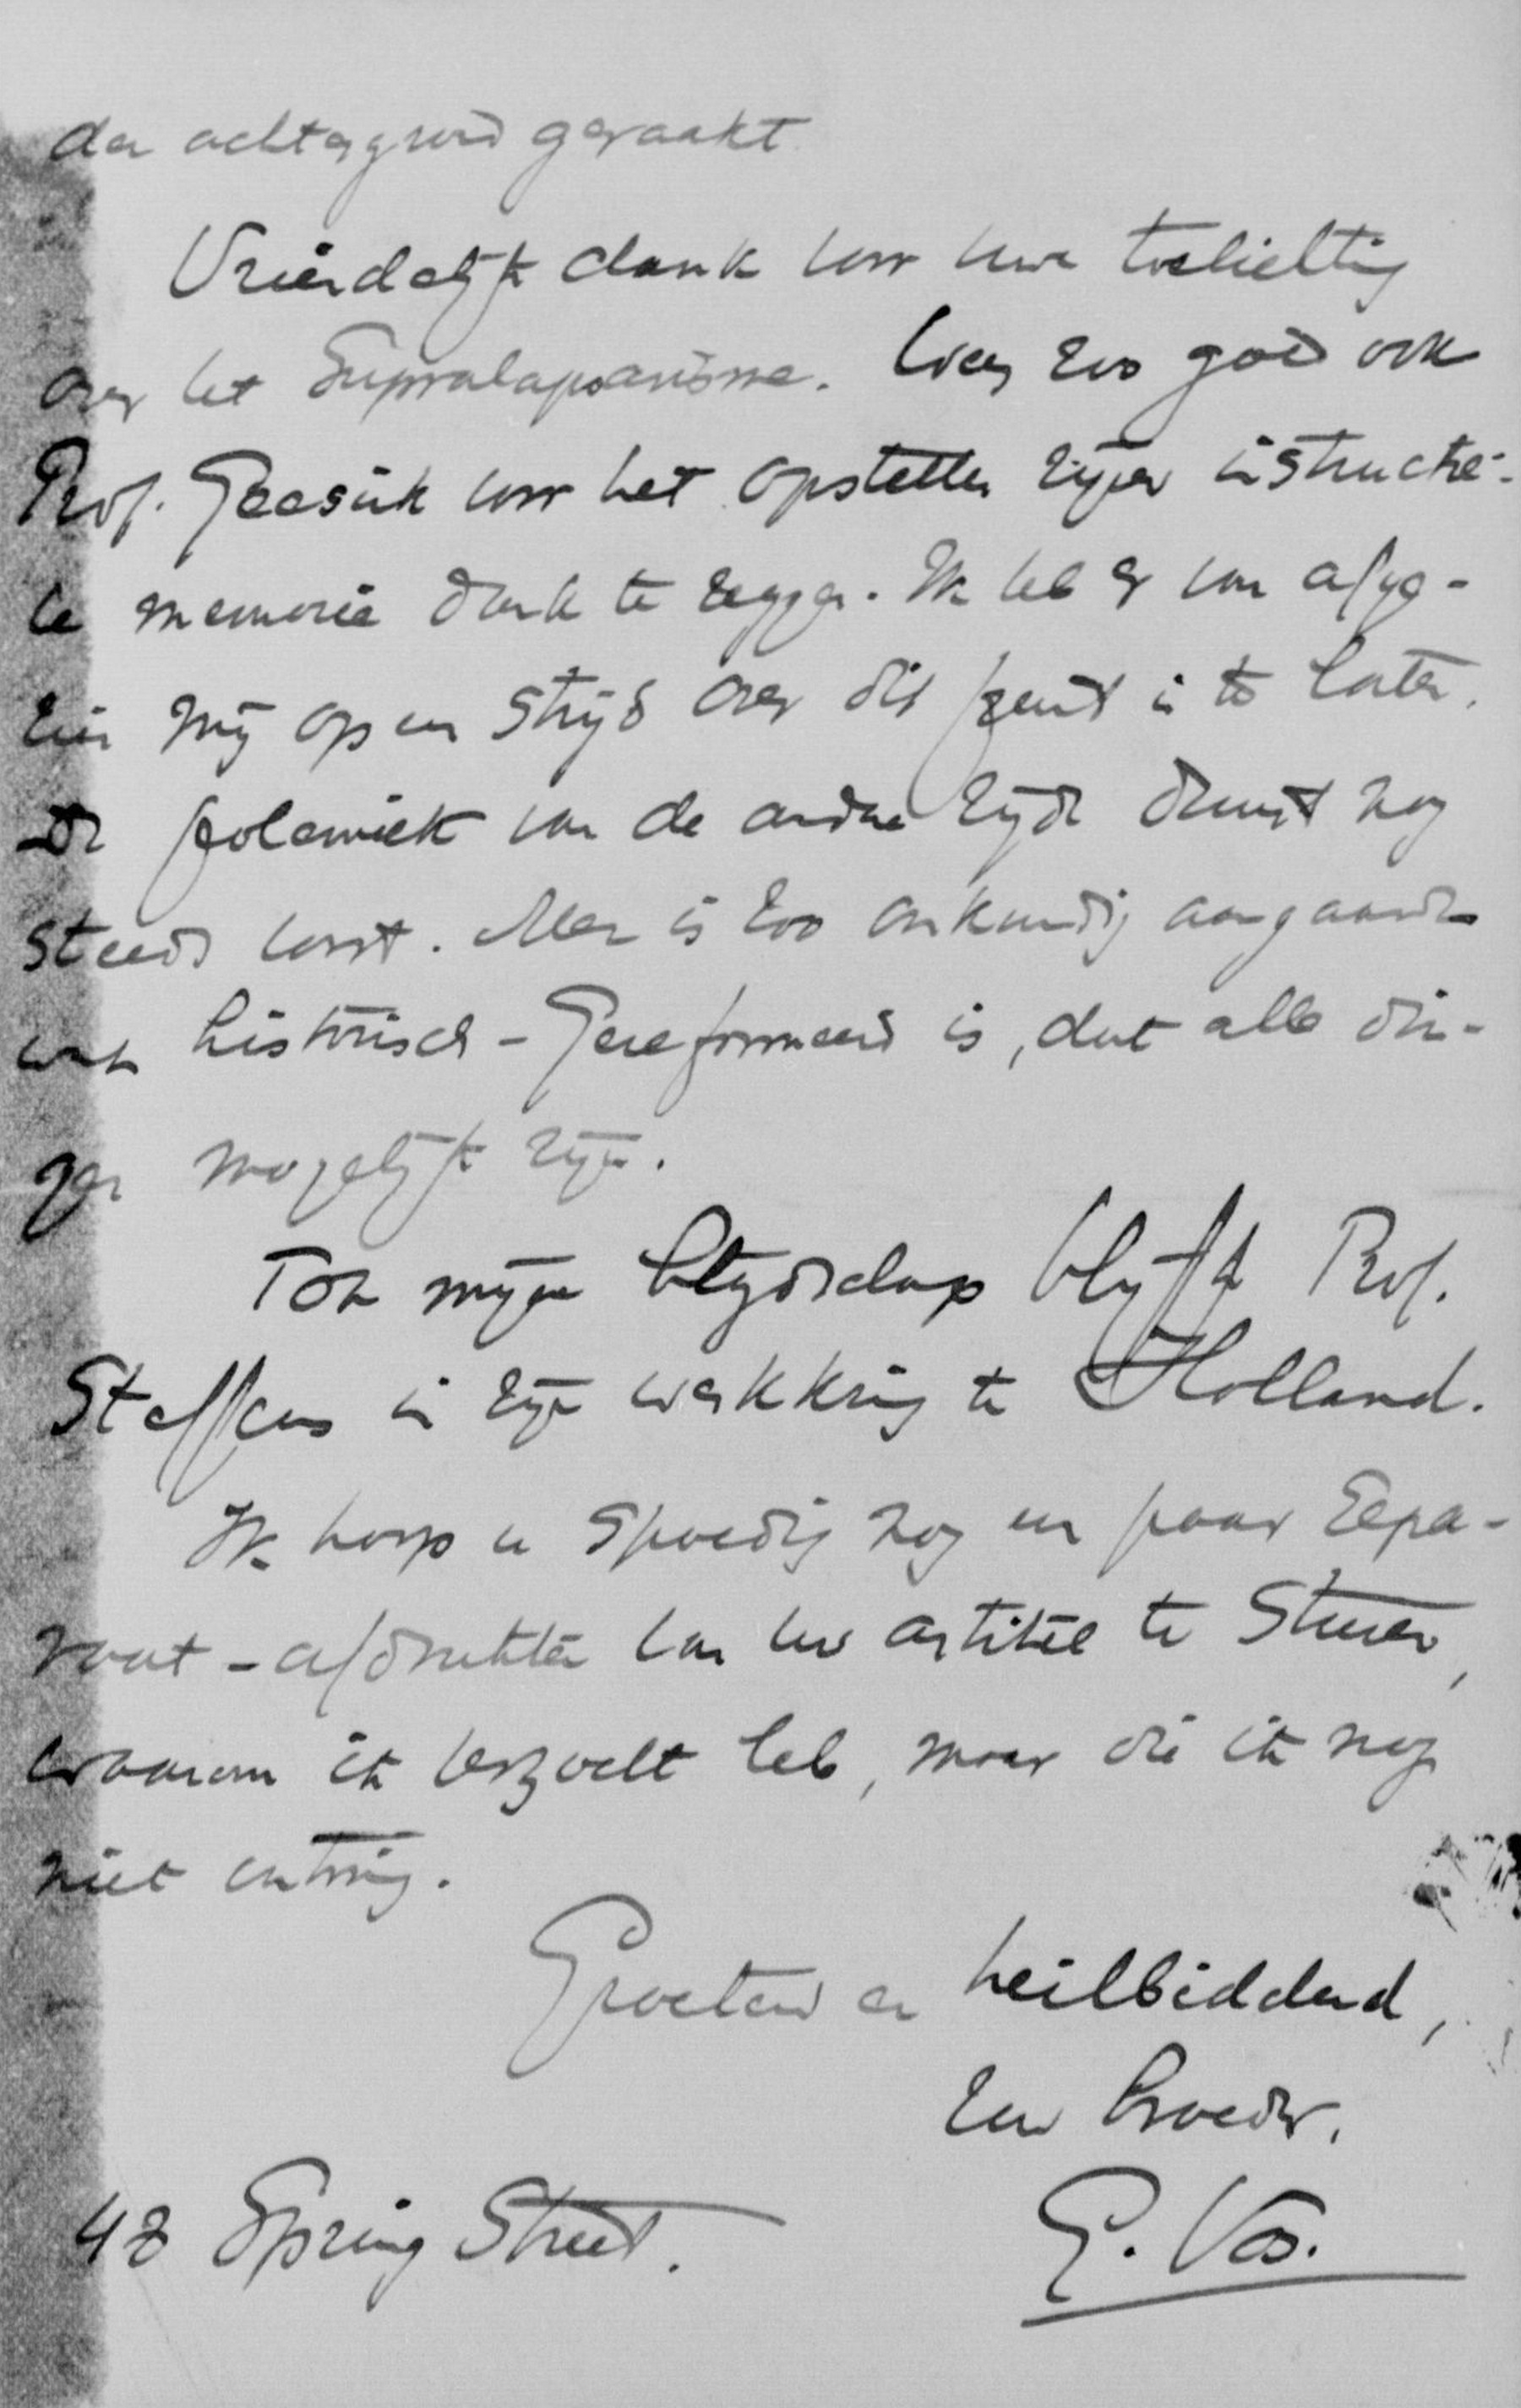 den achtergrond geraakt.
Vriendelijk dank voor uwe toelichting
over het Supralapsarisme. Wees zoo goed ook
Prof. Geesink voor het opstellen zijner instructie-
ve memorie dank te zeggen. Ik heb er van afge-
zien mij op en strijd over dit punt in te laten.
De polemiek van de andere zijde duurt nog
steeds voort. Men is zoo onkundig aangaande
wat historisch-Gereformeerd is, dat alle din-
gen mogelijk zijn.
Tot mijne blijdschap blijft Prof.
Steffens in zijn werkkring te Holland.
Ik hoop u spoedig nog een paar Sepa-
raat-afdrukken van uw artikel te sturen,
waarom ik verzocht heb, maar die ik nog
niet ontving.
Groetend en heilbiddend,
Uw broeder,
48 Spring Street. G. Vos.